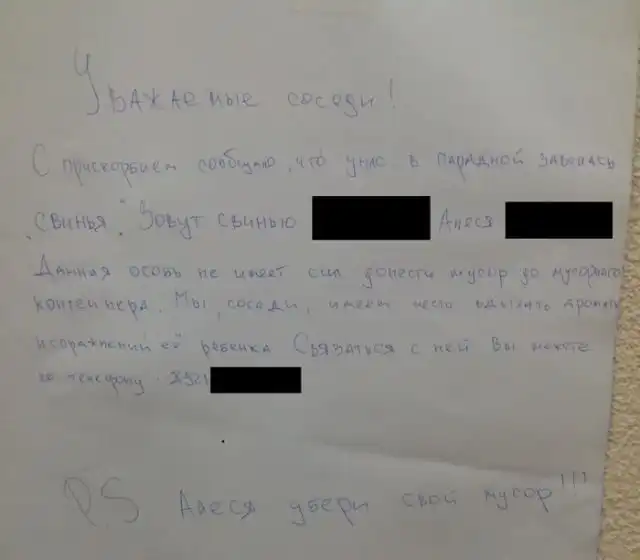 Уважаемые соседи!
С прискорбием сообщаю, что у нас в парадной завелась
„Свинья". Зовут свинью Алеся
Данная особь не имеет сил донести мусор до мусорного
контейнера. Мы, соседи, имеем честь вдыхать аромат
испражнений её ребенка Связаться с ней Вы можете
по телефону. 8921
P.S Алеся убери свой мусор!!!